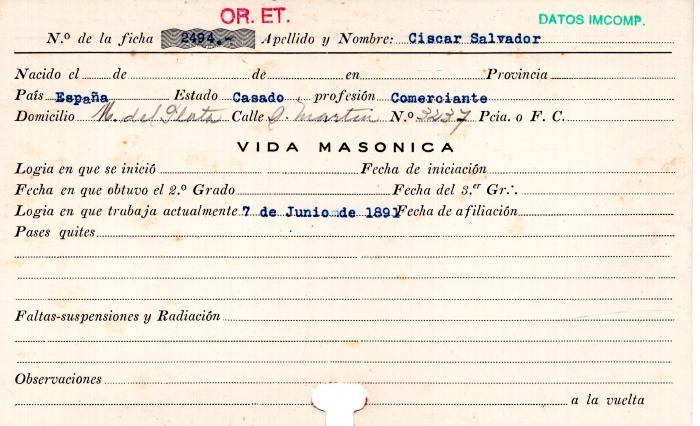 OR. ET.
DATOS IMCOMP.
N.º de la ficha 2494.- Apellido y Nombre: Ciscar Salvador
Nacido el de de en Provincia
País España Estado Casado profesión Comerciante
Domicilio M. del Plata Calle S. Martin N.º 3237 Pcia. o F. C.
VIDA MASONICA
Logia en que se inició Fecha de iniciación
Fecha en que obtuvo el 2.º Grado Fecha del 3.er Gr∴
Logia en que trabaja actualmente 7 de Junio de 1891 Fecha de afiliación
Pases quites
Faltas-suspensiones y Radiación
Observaciones
a la vuelta